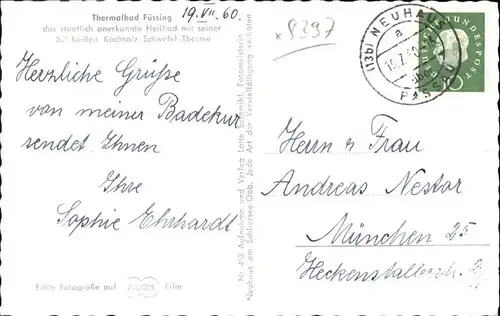 Thermalbad Füssing
das staatlich anerkannte Heilbad mit seiner
56° heißen Kochsalz-Schwefel-Therme
19.VII.60.
x 8397
(13b) NEUHAUS
a
über
PASSAU
DEUTSCHE BUNDESPOST
10
Herzliche Grüße
von meiner Badekur
sendet Ihnen
Ihre
Sophie Ehrhardt
Nr. 453 Aufnahme und Verlag Lotte Fotomeisterin
Neuhaus am Schliersee Obb. Jede Art der Vervielfältigung verboten
Herrn u. Frau
Andreas Nestor
München 25
Heckenstallerstr.
Echte Fotografie auf AGFA Film